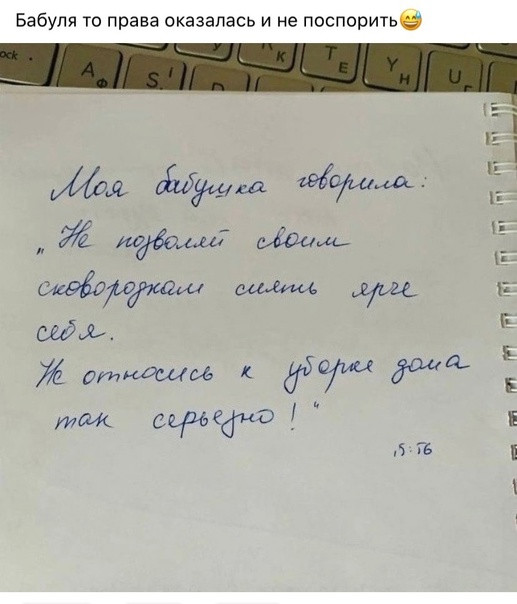 Бабуля то права оказалась и не поспорить😅
ock
A Ф
S
K
T E
Y Н
U Г
Моя бабушка говорила:
„Не позволяй своим
сковородкам сиять ярче
себя.
Не относись к уборке дома
так серьезно!“